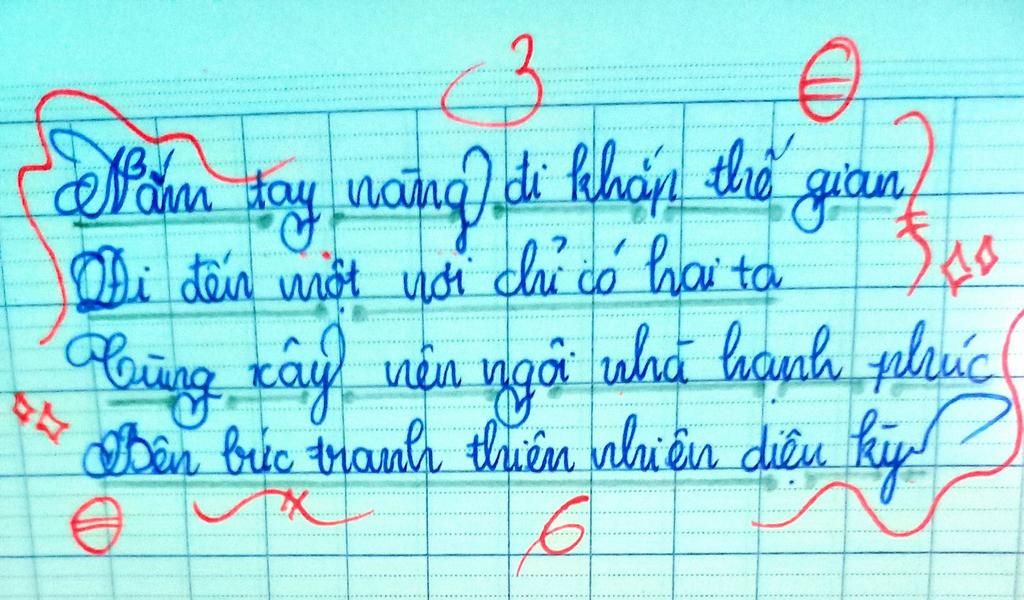 3
Nắm tay nàng đi khắp thế gian
Đi đến một nơi chỉ có hai ta
Cùng xây nên ngôi nhà hạnh phúc
Bên bức tranh thiên nhiên diệu kỳ
6